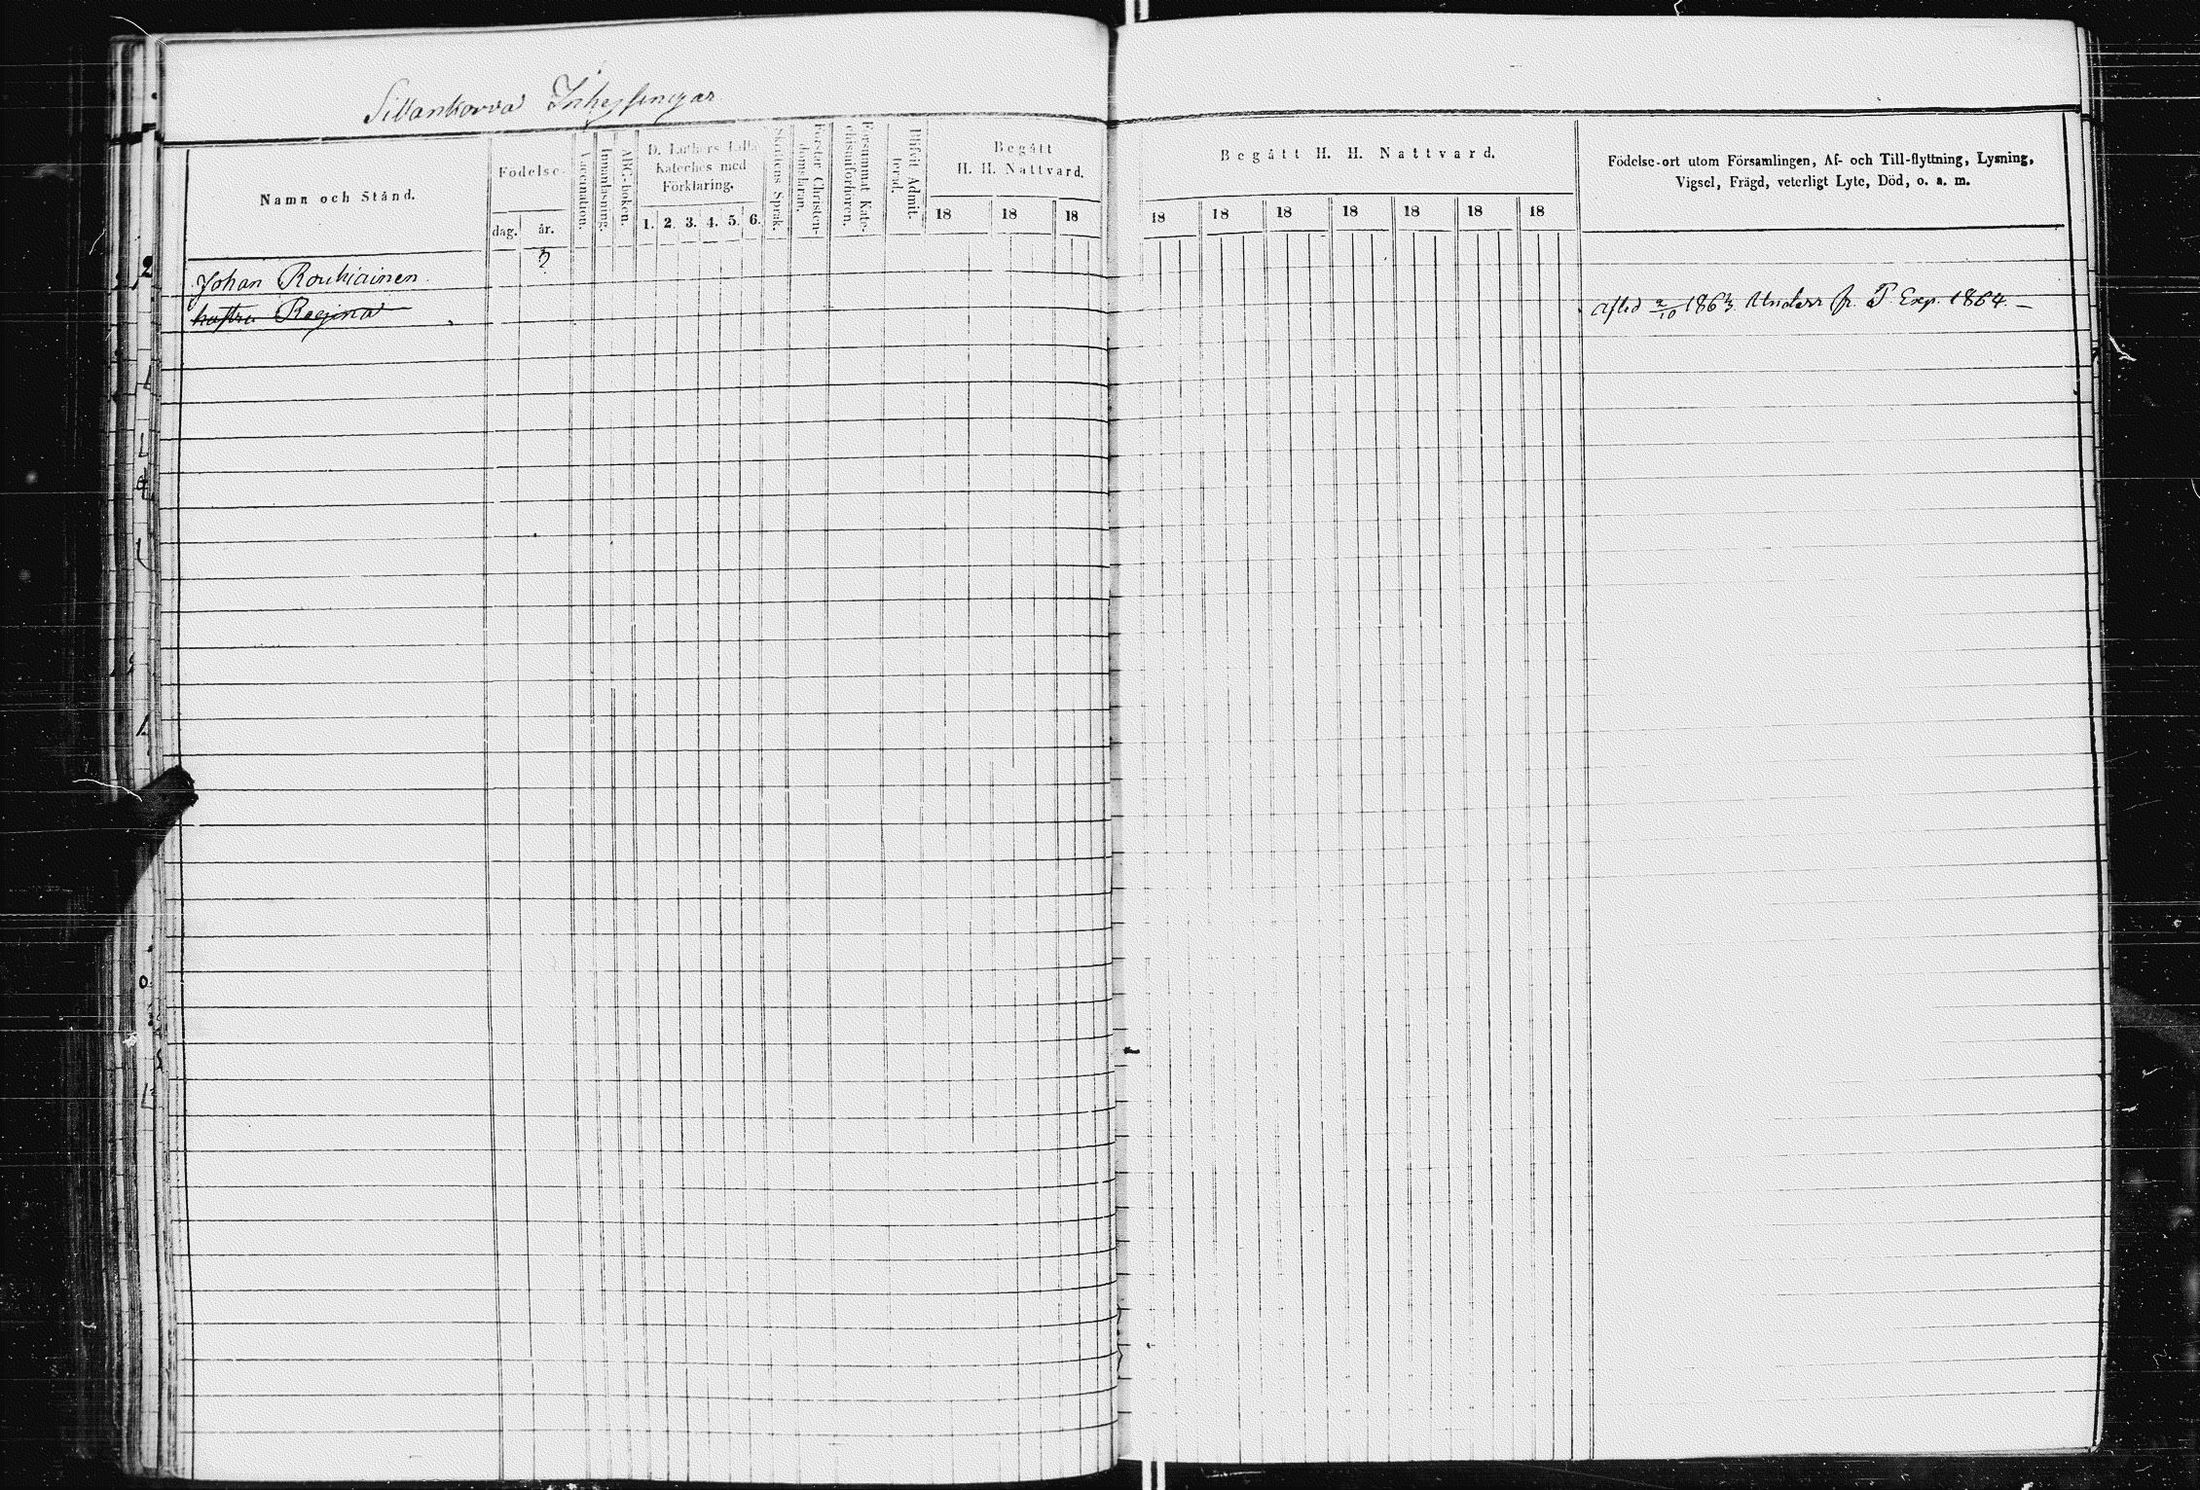 Sillankorva Inhysingar
Namn och Stånd.
Födelse.
dag. år.
Vaccination.
Innanläsning.
ABC-boken.
D. Luthers Lilla
Kateches med
Förklaring.
1. 2. 3. 4. 5. 6.
Skriftens Språk.
Förstår Christen-
domsläran.
Försummat Kate-
chismiförhören.
Blifvit Admit-
terad.
Begått
H. H. Nattvard.
18 18 18
Begått H. H. Nattvard.
18 18 18 18 18 18 18
Födelse-ort utom Församlingen, Af- och Till-flyttning, Lysning,
Vigsel, Frägd, veterligt Lyte, Död, o. a. m.
Johan Roukiainen ?
hustru Regina
Afled 2/10 1863. Underr fr. P. Exp. 1864. –